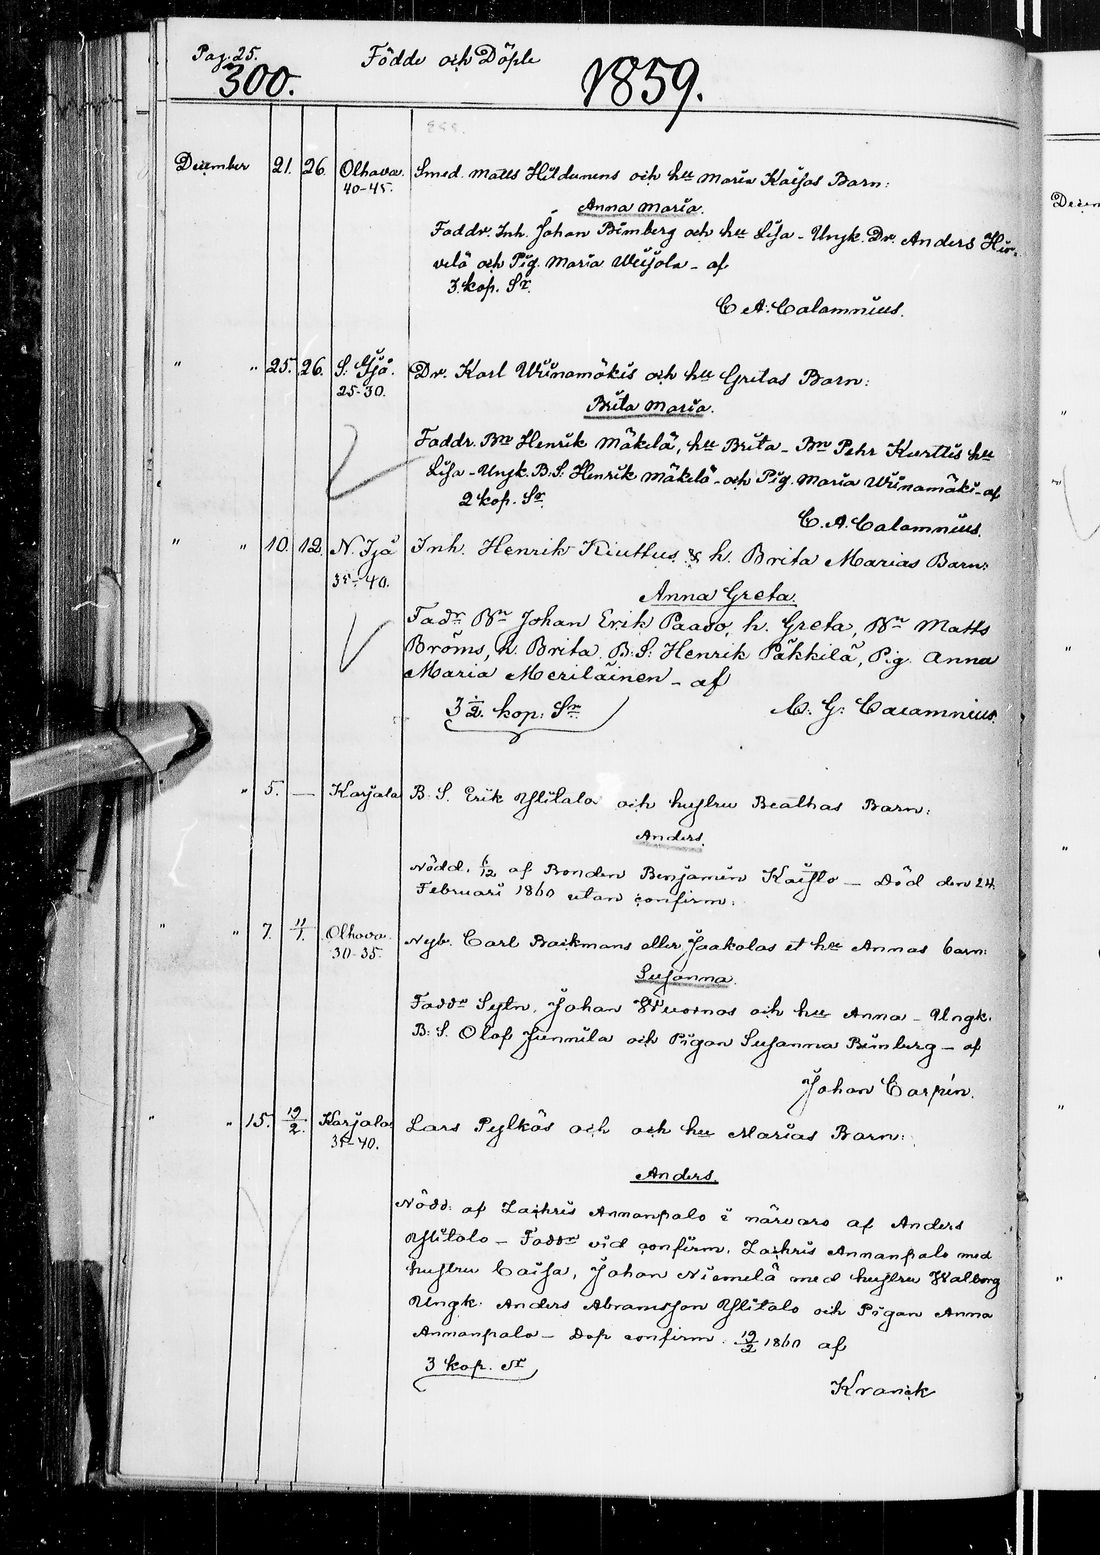 Pag. 25.
300.
Födde och Döpte
1859.
December 21. 26. Olhava Smed. Matts Hildunens och hu Maria Kaisas Barn:
40-45.
Anna Maria.
Faddr. Inh. Johan Bimberg och hu Lisa - Ungk. Dr. Anders Hir-
velä och Pig. Maria Weijola - af
3 kop. Sr.
C. A. Calamnius.
" " 25. 26. S. Ijå. Dr. Karl Wiinamäkis och hu Gretas Barn:
25-30.
Brita Maria.
Faddr. Bn Henrik Mäkelä, hu Brita - Bn Pehr Kurttis hu
Lisa - Ungk. B.S. Henrik Mäkelä - och Pig. Maria Wiinamäki - af
2 kop. Sr.
C. A. Calamnius.
" " 10. 12. N. Ijå Inh. Henrik Kiuttus & h. Brita Marias Barn:
35-40.
Anna Greta.
Fadr Bn Johan Erik Paaso, h. Greta, Bn Matts
Bröms, h. Brita. B.S. Henrik Päkkilä, Pig. Anna
Maria Meriläinen - af
3 1/2 kop. Sr.
C. G. Calamnius.
" 5. — Karjala B. S. Erik Ylitalo och hustru Beathas Barn:
Anders.
Nödd. 6/12 af Bonden Benjamin Kaisto — Död den 24
Februari 1860 utan confirm:
" " 7. 11/1. Olhava Nyb. Carl Backmans eller Jaakolas et hu Annas barn:
30-35.
Susanna.
Faddr Sytn. Johan Wuornos och hu Anna - Ungk.
B. S. Olof Junnila och Pigan Susanna Bimberg — af
Johan Carpén.
" " 15. 19/2. Karjala Lars Pylkäs och och hu Marias Barn:
35-40.
Anders.
Nödd. af Zachris Annanpalo i närvaro af Anders
Ylitalo — Faddr vid confirm. Zachris Annanpalo med
hustru Caisa, Johan Niemelä med hustru Walborg
Ungk. Anders Abramsson Ylitalo och Pigan Anna
Annanpalo — Dop confirm. 19/2 1860 af
3 kop. Sr
Kranck